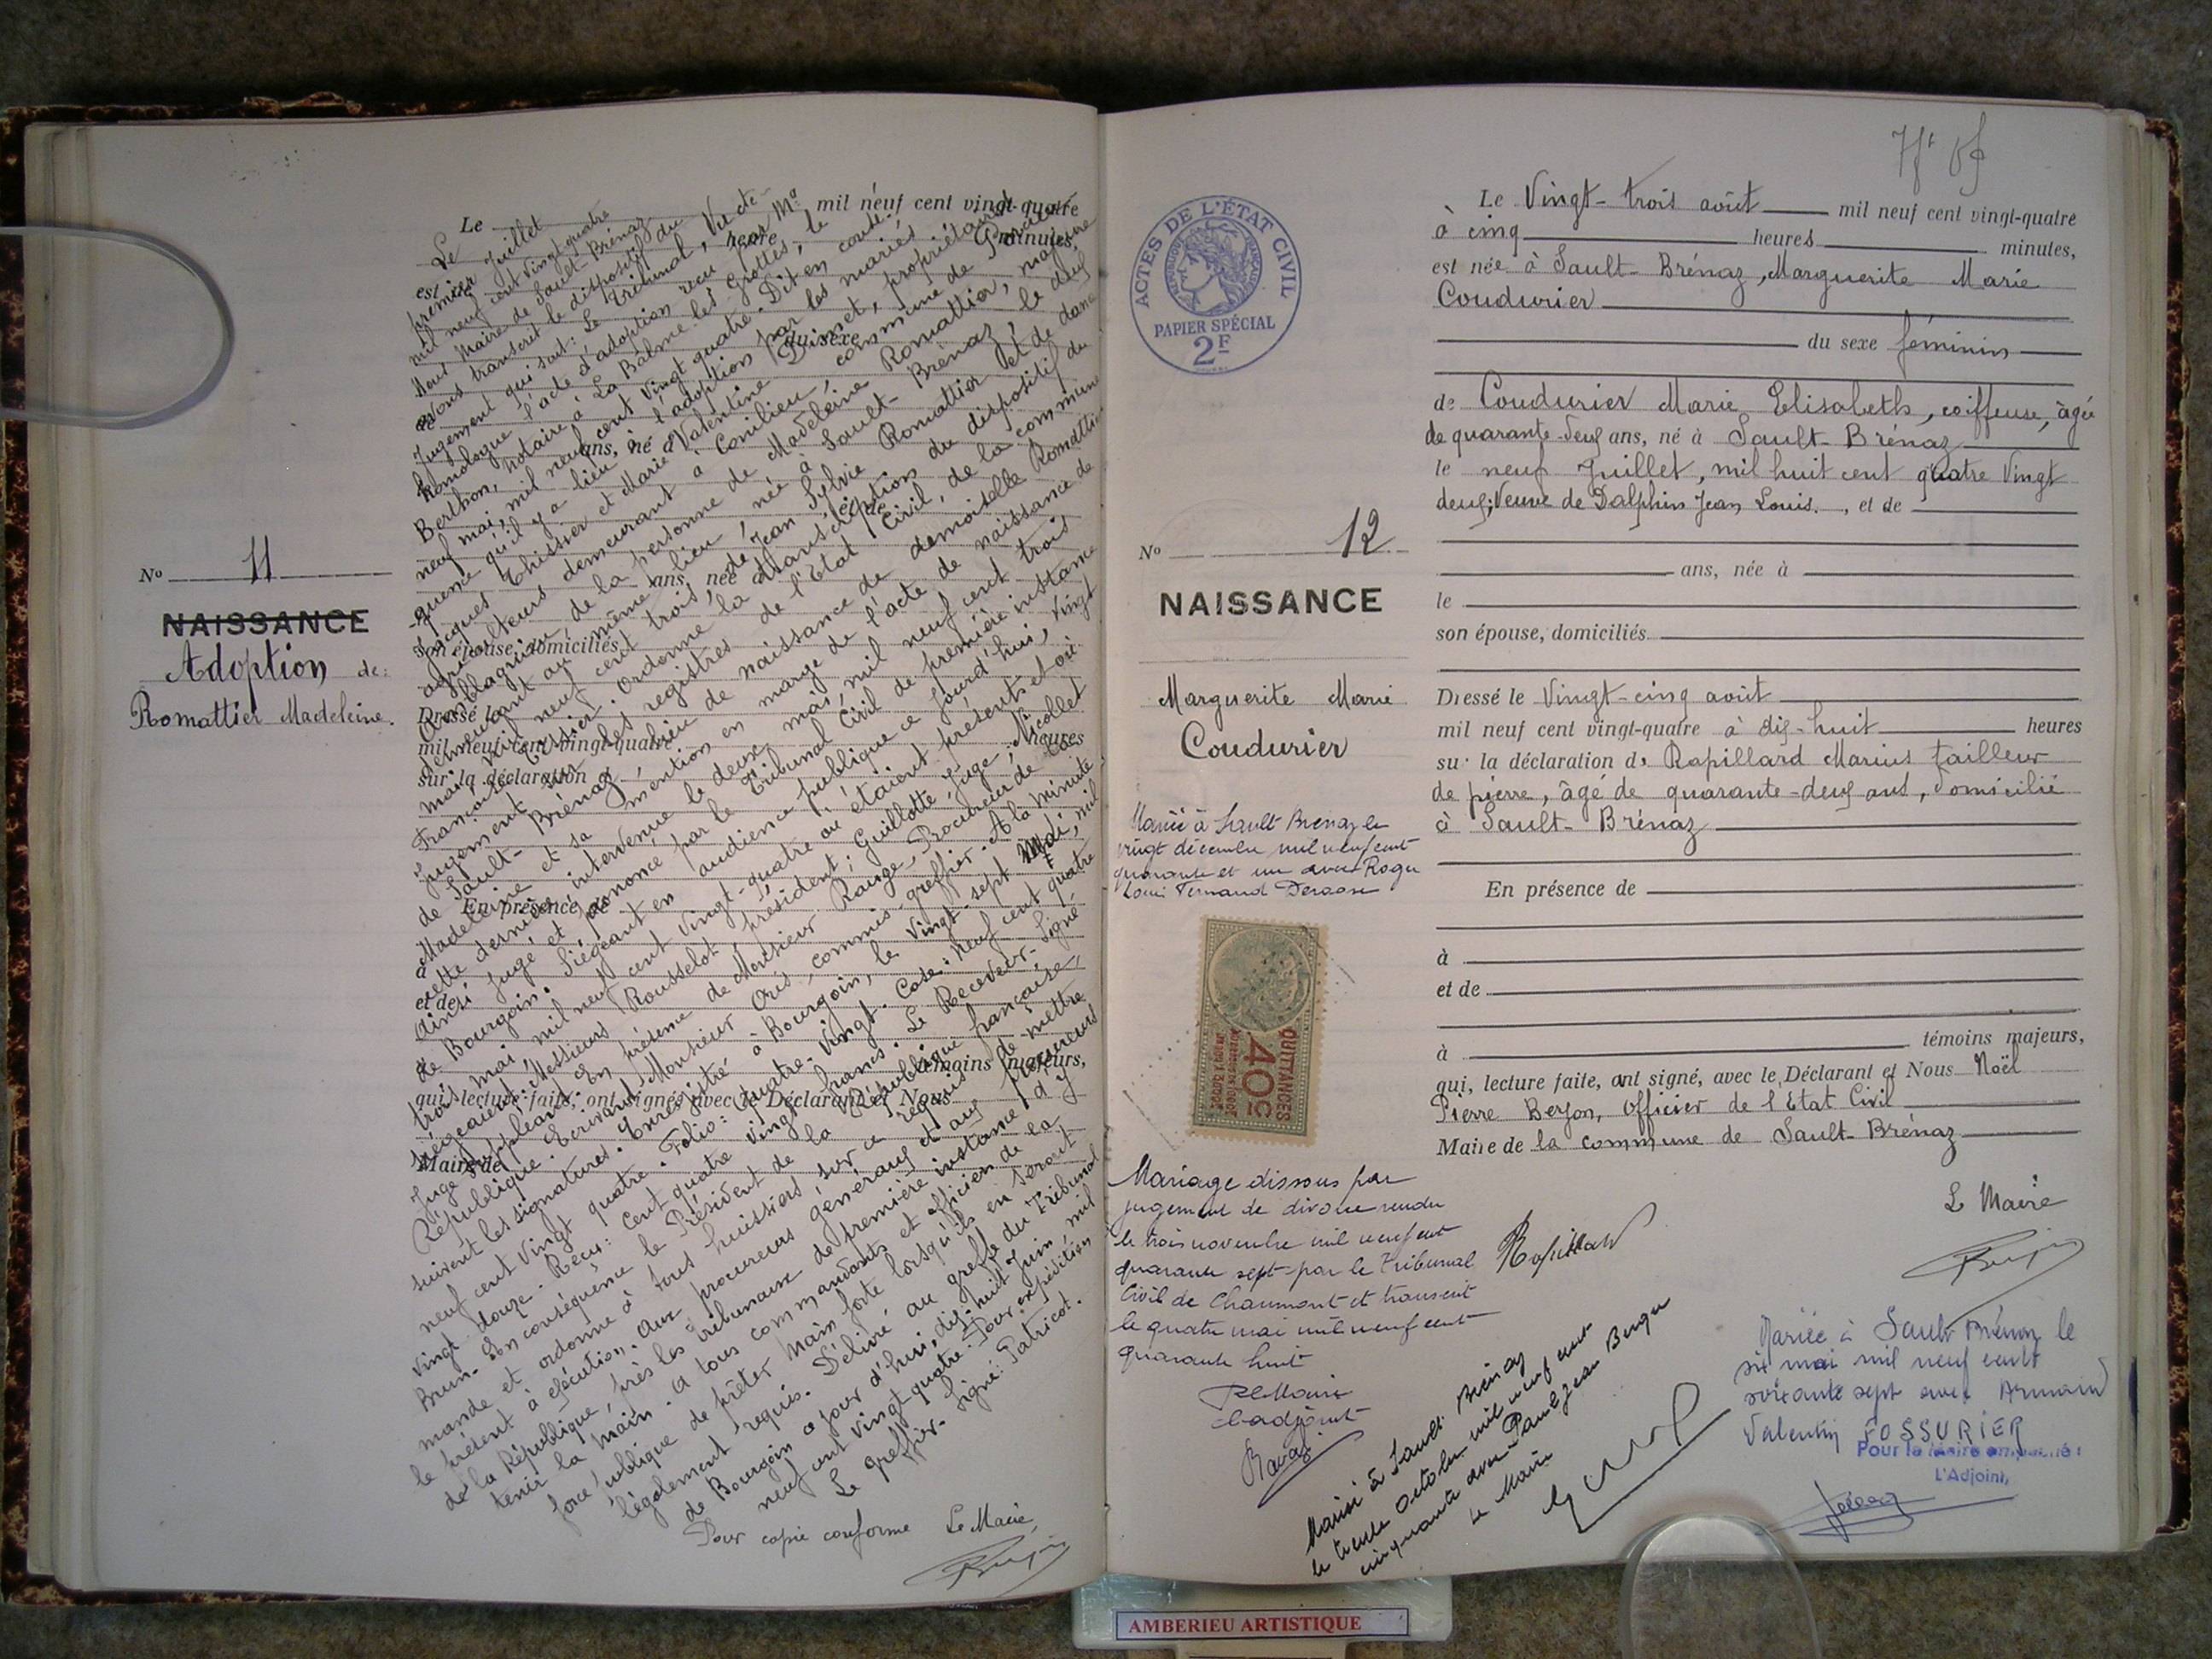 Le mil neuf cent vingt-quatre
heure minutes,
Le
premier Juillet
mil neuf cent vingt quatre
Nous Maire de Sault-Brénaz
avons transcrit le dispositif du
Jugement qui suit: Le Tribunal, Vu et
homologue l'acte d'adoption reçu par Me
Berthon, notaire à La Balme-les-Grottes, le
neuf mai, mil neuf cent vingt quatre. Dit en consé-
quence qu'il y a lieu à l'adoption par les mariés
Jacques Thissier et Marie Valentine propriétaires
agriculteurs demeurant à Conilieu, commune de
de la personne de Madeleine Romattier, majeure
demeurant au même lieu, née à Sault-Brénaz, le deux
mai, mil neuf cent trois, de Jean Romattier et de dame
Françoise Sylvie Ordonne la transcription du dispositif du
Jugement sur les registres de l'Etat Civil, de la commune
de Sault-Brénaz, lieu de naissance de demoiselle Romattier
Madeleine et sa mention en marge de l'acte de naissance de
cette dernière intervenue le deux mai, mil neuf cent trois
Ainsi Jugé et prononcé par le Tribunal Civil de première instance
de Bourgoin. Siégeant en audience publique ce jourd'hui, vingt
trois mai, mil neuf cent vingt-quatre où étaient présents et où
siégeaient: Messieurs Rousselot président; Guillotte Juge; Nicollet
Juge suppléant. En présence de Monsieur Range, Procureur de la
République. Ecrivant Monsieur Oris, commis-greffier. A la minute
suivent les signatures. Enregistré à Bourgoin, le vingt-sept Mai, mil
neuf cent vingt quatre. Folio: quatre-vingt. Case: neuf cent quatre
vingt douze. Reçu: Cent quatre vingt francs. Le Receveur. Signé
Brun. En conséquence le Président de la République française,
mande et ordonne à tous huissiers sur ce requis de mettre
le présent à exécution. Aux procureurs généraux et aux procureurs
de la République, près les tribunaux de première instance d'y
tenir la main. A tous commandants et officiers de la
force publique de prêter main forte lorsqu'ils en seront
légalement requis. Délivré au greffe du Tribunal
de Bourgoin ce jour d'hui, dix-huit Juin, mil
neuf cent vingt quatre. Pour expédition
Le greffier. Signé: Patricot.
Pour copie conforme Le Maire,
No 11
NAISSANCE
Adoption de:
Romattier Madeleine.
est
du sexe
ans, né à
et de
ans, née à
son épouse, domiciliés
Dressé le
mil neuf cent vingt-quatre heures
sur la déclaration d
En présence de
à
et de
témoins majeurs,
qui, lecture faite, ont signés avec le Déclarant et Nous
Maire de
ACTES DE L'ÉTAT CIVIL
PAPIER SPÉCIAL
2F
No 12
NAISSANCE
Marguerite Marie
Coudurier
Mariée à Sault Brénaz le
vingt décembre mil neuf cent
quarante et un avec Roger
Louis Fernand
QUITTANCES
40c
Mariage dissous par
jugement de divorce rendu
le trois novembre mil neuf cent
quarante sept par le Tribunal
Civil de Chaumont et transcrit
le quatre mai mil neuf cent
quarante huit
Le Maire
L'adjoint
Le Vingt-trois août mil neuf cent vingt-quatre
à cinq heures minutes,
est née à Sault-Brénaz, Marguerite Marie
Coudurier
du sexe féminin
de Coudurier Marie Elisabeth, coiffeuse, âgée
de quarante-deux ans, né à Sault-Brénaz
le neuf Juillet, mil huit cent quatre Vingt
deux, Veuve de Dalphin Jean Louis, et de
ans, née à
le
son épouse, domiciliés
Dressé le Vingt-cinq août
mil neuf cent vingt-quatre à dix-huit heures
sur la déclaration de Rapillard Marius tailleur
de pierre, âgé de quarante-deux ans, domicilié
à Sault-Brénaz
En présence de
à
et de
à témoins majeurs,
qui, lecture faite, ont signé, avec le Déclarant et Nous Noël
Pierre Berjon, Officier de l'Etat Civil
Maire de la commune de Sault-Brénaz
Le Maire
Rapillard
Mariée à Sault Brénaz
le trente octobre mil neuf cent
cinquante avec Paul Jean Berger
Le Maire
Mariée à Sault Brénaz le
six mai mil neuf cent
soixante sept avec Armand
Valentin FOSSURIER
Pour le Maire empêché :
L'Adjoint,
AMBERIEU ARTISTIQUE